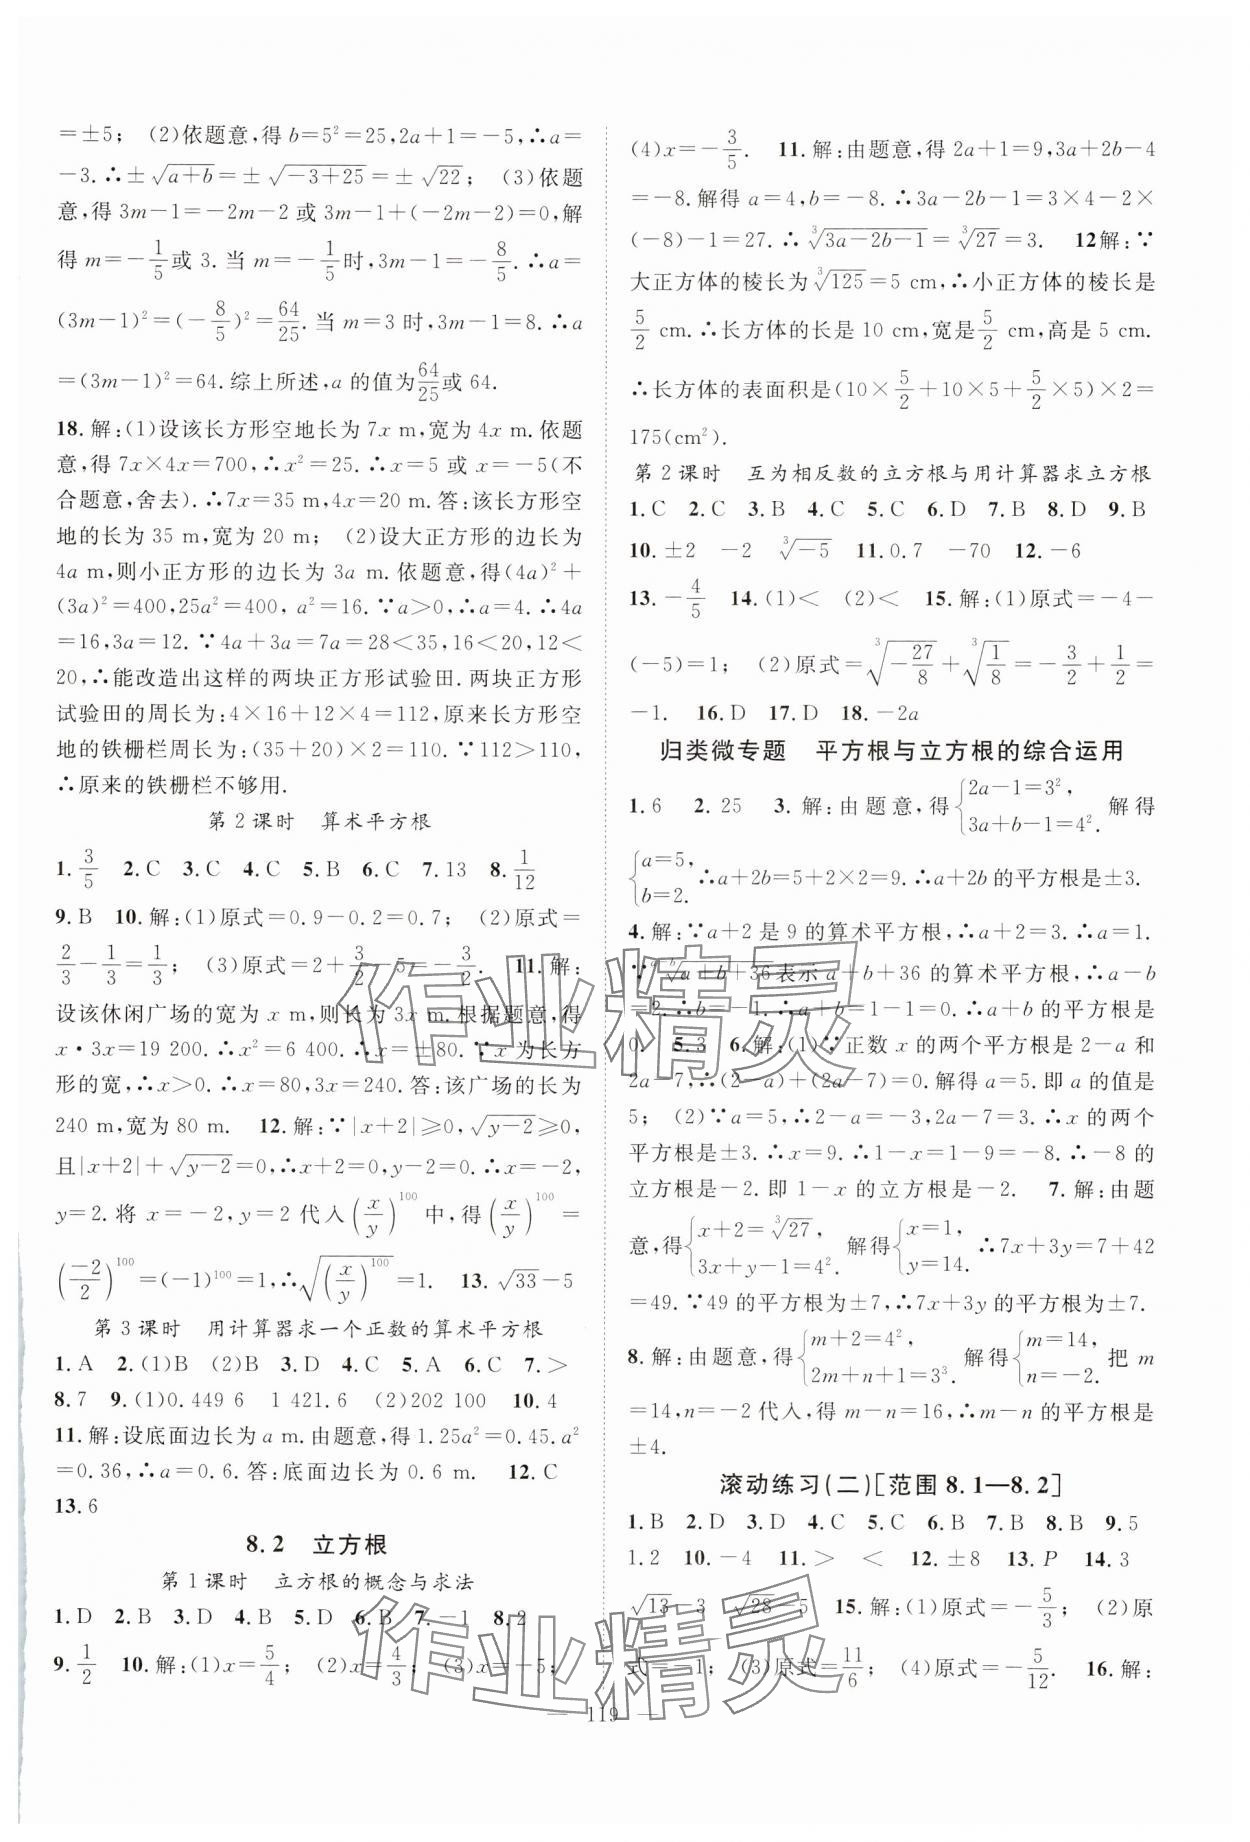 =±5； (2)依题意,得 b=5²=25,2a+1=-5,∴a=
-3.∴±√(a+b)=±√(-3+25)=±√22； (3)依题
意,得 3m-1=-2m-2 或 3m-1+(-2m-2)=0,解
得 m=-1/5或 3.当 m=-1/5时,3m-1=-8/5.∴a=
(3m-1)²=(-8/5)²=64/25.当 m=3 时,3m-1=8.∴a
=(3m-1)²=64.综上所述,a 的值为64/25或 64.
18.解:(1)设该长方形空地长为 7x m,宽为 4x m.依题
意,得 7x×4x=700,∴x²=25.∴x=5 或 x=-5(不
合题意,舍去).∴7x=35 m,4x=20 m.答:该长方形空
地的长为 35 m,宽为 20 m； (2)设大正方形的边长为
4a m,则小正方形的边长为 3a m.依题意,得(4a)²+
(3a)²=400,25a²=400, a²=16.∵a>0,∴a=4.∴4a
=16,3a=12.∵4a+3a=7a=28<35,16<20,12<
20,∴能改造出这样的两块正方形试验田.两块正方形
试验田的周长为:4×16+12×4=112,原来长方形空
地的铁栅栏周长为:(35+20)×2=110.∵112>110,
∴原来的铁栅栏不够用.
第 2 课时 算术平方根
1.3/5 2.C 3.C 4.C 5.B 6.C 7.13 8.1/12
9.B 10.解:(1)原式=0.9-0.2=0.7； (2)原式=
2/3-1/3=1/3； (3)原式=2+3/2-5=-3/2. 11.解:
设该休闲广场的宽为 x m,则长为 3x m.根据题意,得
x·3x=19 200.∴x²=6 400.∴x=±80.∵x 为长方
形的宽,∴x>0.∴x=80,3x=240.答:该广场的长为
240 m,宽为 80 m. 12.解:∵|x+2|≥0,√(y-2)≥0,
且|x+2|+√(y-2)=0,∴x+2=0,y-2=0.∴x=-2,
y=2.将 x=-2,y=2 代入(x/y)¹⁰⁰中,得(x/y)¹⁰⁰=
(-2/2)¹⁰⁰=(-1)¹⁰⁰=1,∴√((x/y)¹⁰⁰)=1. 13.√33-5
第 3 课时 用计算器求一个正数的算术平方根
1.A 2.(1)B (2)B 3.D 4.C 5.A 6.C 7.>
8.7 9.(1)0.449 6 1 421.6 (2)202 100 10.4
11.解:设底面边长为 a m.由题意,得 1.25a²=0.45.a²
=0.36,∴a=0.6.答:底面边长为 0.6 m. 12.C
13.6
8.2 立方根
第 1 课时 立方根的概念与求法
1.D 2.B 3.D 4.B 5.D 6.B 7.-1 8.2
9.1/2 10.解:(1)x=5/4； (2)x=4/3； (3)x=-5；
(4)x=-3/5. 11.解:由题意,得 2a+1=9,3a+2b-4
=-8.解得 a=4,b=-8.∴3a-2b-1=3×4-2×
(-8)-1=27.∴∛(3a-2b-1)=∛27=3. 12解:∵
大正方体的棱长为∛125=5 cm,∴小正方体的棱长是
5/2 cm.∴长方体的长是 10 cm,宽是5/2 cm,高是 5 cm.
∴长方体的表面积是(10×5/2+10×5+5/2×5)×2=
175(cm²).
第 2 课时 互为相反数的立方根与用计算器求立方根
1.C 2.C 3.B 4.C 5.C 6.D 7.B 8.D 9.B
10.±2 -2 ∛-5 11.0.7 -70 12.-6
13.-4/5 14.(1)< (2)< 15.解:(1)原式=-4-
(-5)=1； (2)原式=∛(-27/8)+∛(1/8)=-3/2+1/2=
-1. 16.D 17.D 18.-2a
归类微专题 平方根与立方根的综合运用
1.6 2.25 3.解:由题意,得{2a-1=3², 3a+b-1=4². 解得
{a=5, b=2. ∴a+2b=5+2×2=9.∴a+2b 的平方根是±3.
4.解:∵a+2 是 9 的算术平方根,∴a+2=3.∴a=1.
∵ᵃ⁻ᵇ√(a+b+36)表示 a+b+36 的算术平方根,∴a-b
=2.∴b=-1.∴a+b=1-1=0.∴a+b 的平方根是
0. 5.3 6.解:(1)∵正数 x 的两个平方根是 2-a 和
2a-7,∴(2-a)+(2a-7)=0.解得 a=5.即 a 的值是
5； (2)∵a=5,∴2-a=-3,2a-7=3.∴x 的两个
平方根是±3.∴x=9.∴1-x=1-9=-8.∴-8 的
立方根是-2.即 1-x 的立方根是-2. 7.解:由题
意,得{x+2=∛27, 3x+y-1=4². 解得{x=1, y=14. ∴7x+3y=7+42
=49.∵49 的平方根为±7,∴7x+3y 的平方根为±7.
8.解:由题意,得{m+2=4², 2m+n+1=3³. 解得{m=14, n=-2. 把 m
=14,n=-2 代入,得 m-n=16,∴m-n 的平方根是
±4.
滚动练习(二)[范围 8.1—8.2]
1.B 2.D 3.D 4.D 5.C 6.D 7.B 8.B 9.5
1.2 10.-4 11.> < 12.±8 13.P 14.3
√13-3 √28-5 15.解:(1)原式=-5/3； (2)原
式=-1； (3)原式=11/6； (4)原式=-5/12. 16.解:
— 119 —
作业精灵
作业精灵